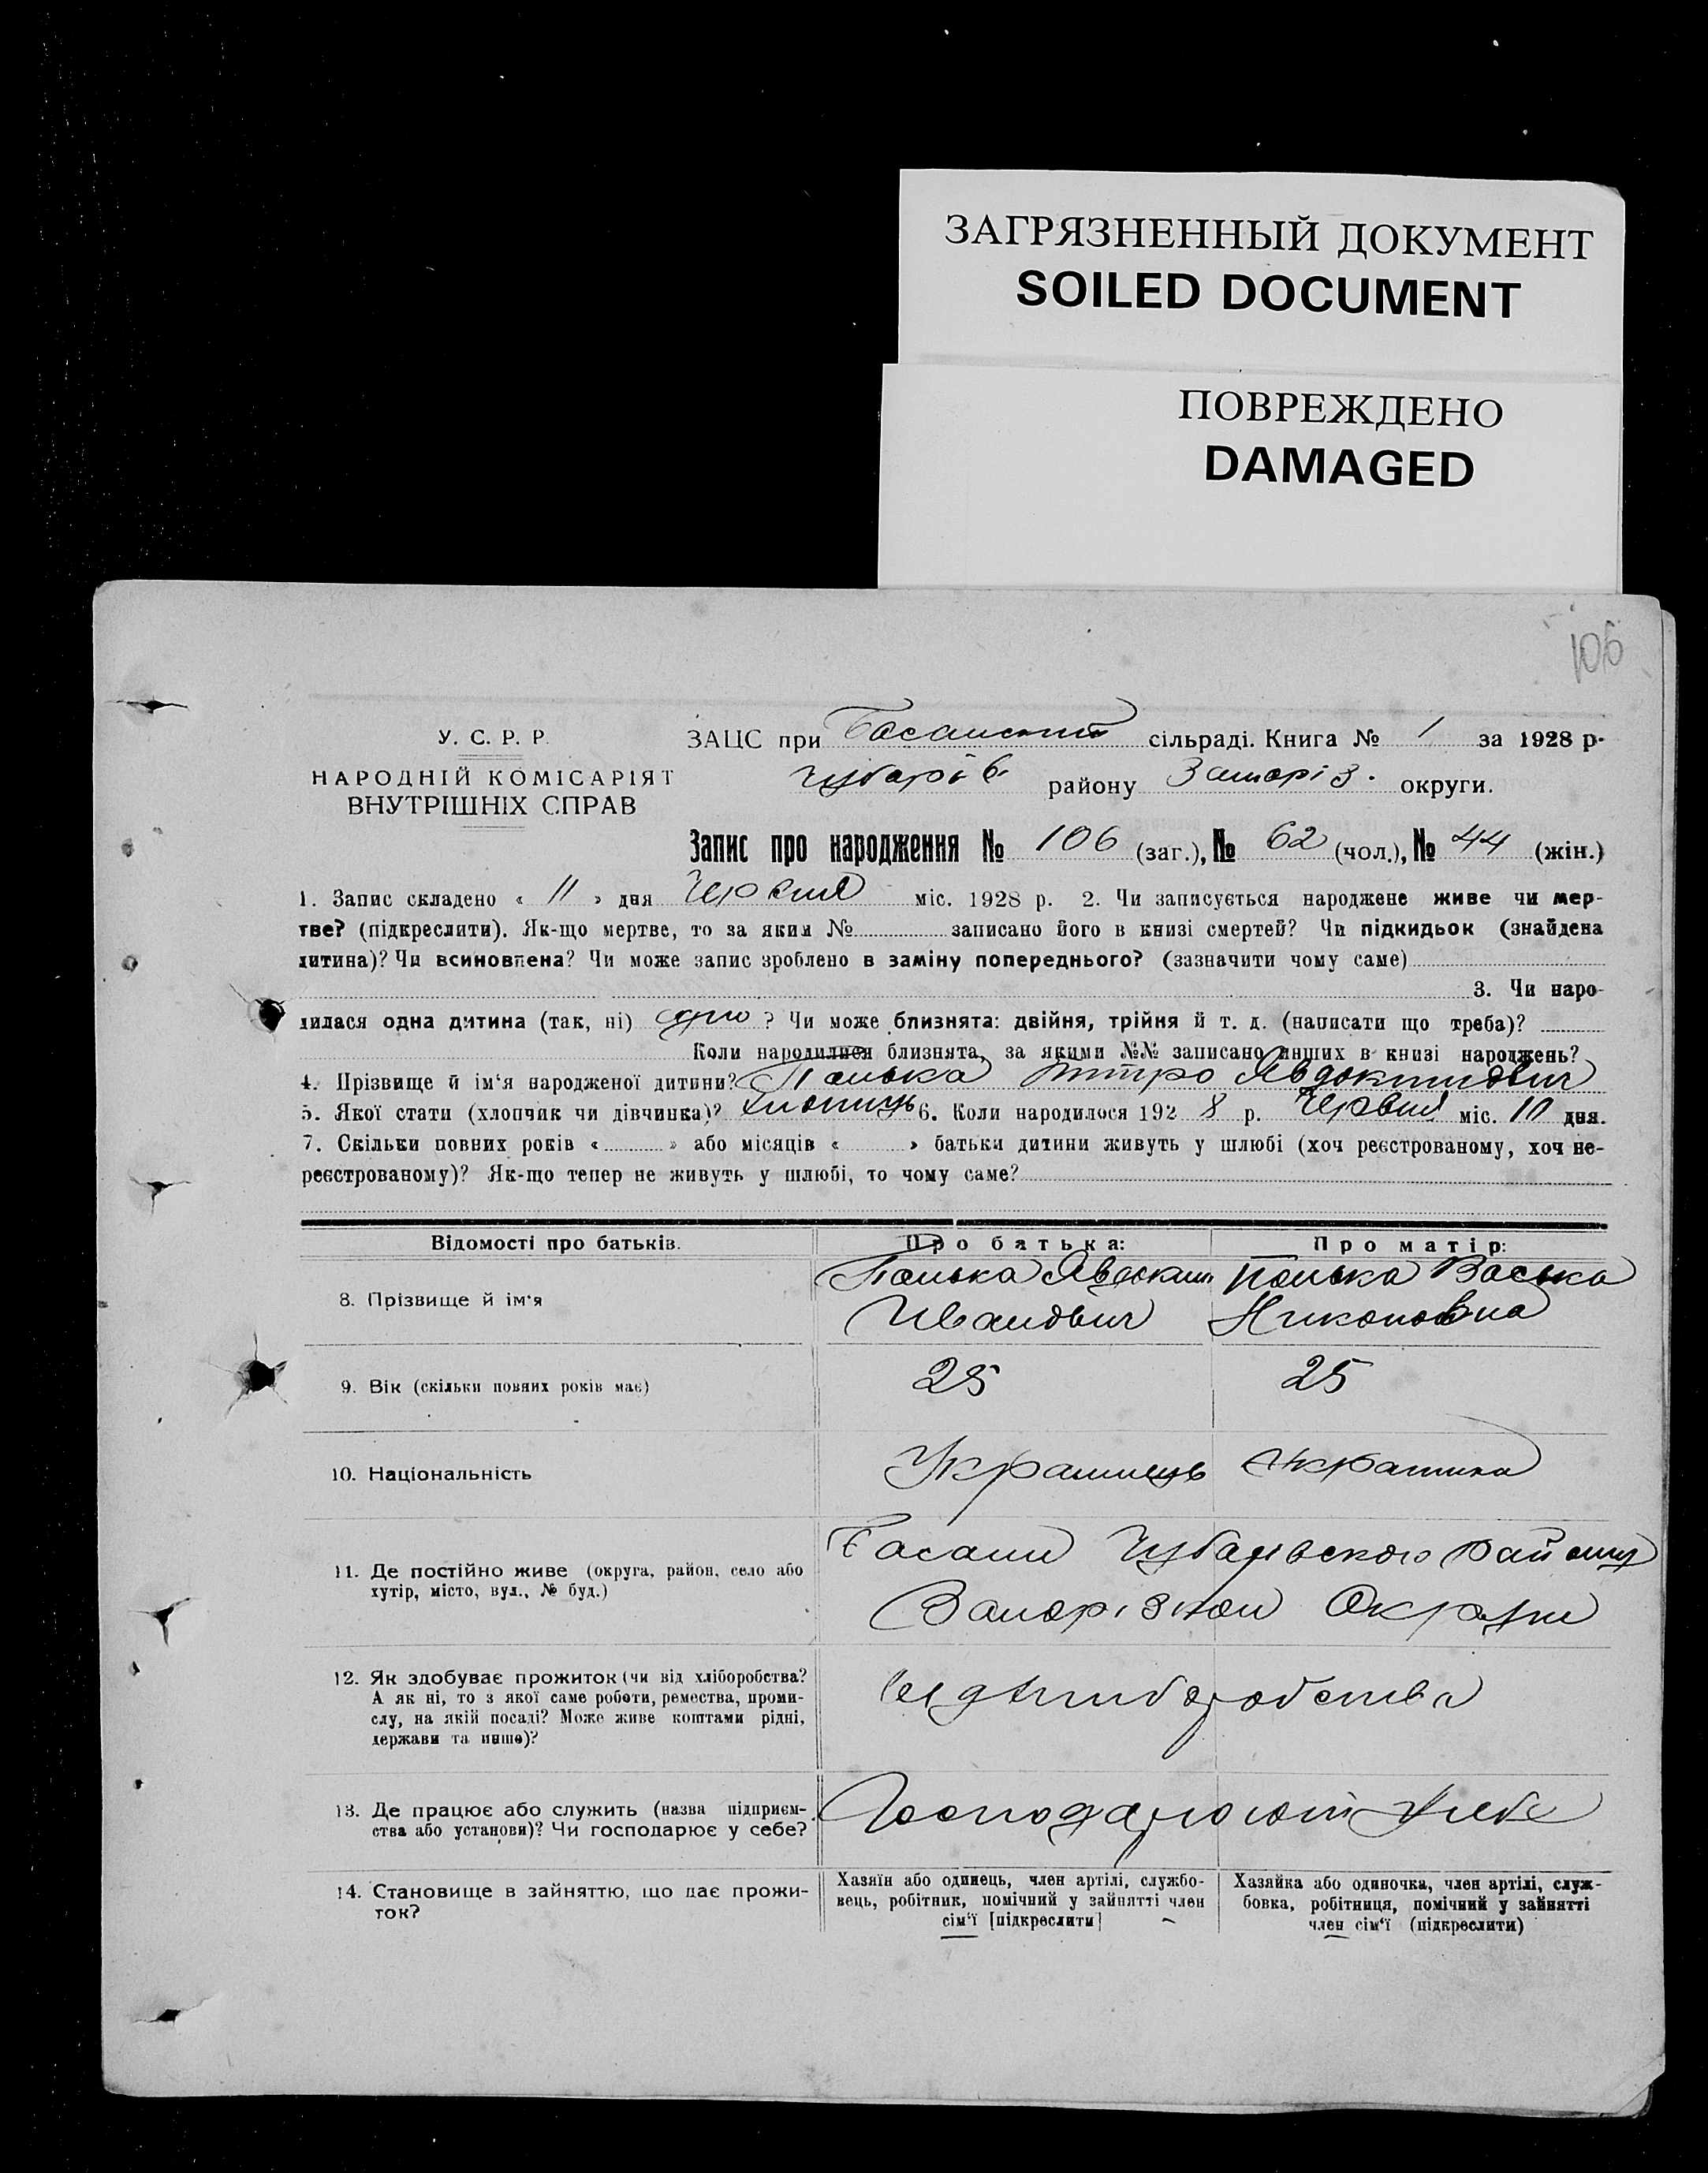 ЗАГРЯЗНЕННЫЙ ДОКУМЕНТ
SOILED DOCUMENT
ПОВРЕЖДЕНО
DAMAGED
106
У. С. Р. Р.
НАРОДНІЙ КОМІСАРІЯТ
ВНУТРІШНІХ СПРАВ
ЗАЦС при сільраді. Книга № 1 за 1928 р.
Чубарів району Запоріз. округи.
Запис про народження № 106 (заг.), № 62 (чол.), № 44 (жін.)
1. Запис складено « 11 » дня Червня міс. 1928 р. 2. Чи записується народжене живе чи мер-
тве? (підкреслити). Як-що мертве, то за яким № записано його в книзі смертей? Чи підкидьок (знайдена
дитина)? Чи всиновлена? Чи може запис зроблено в заміну попереднього? (зазначити чому саме)
3. Чи наро-
дилася одна дитина (так, ні) одно ? Чи може близнята: двійня, трійня й т. д. (написати що треба)?
Коли народилися близнята, за якими №№ записано инших в книзі народжень?
4. Прізвище й ім‘я народженої дитини? Панька Дмитро Явдокимович
5. Якої стати (хлопчик чи дівчинка)? Хлопиць 6. Коли народилося 192 8 р. Червня міс. 10 дня.
7. Скільки повних років « » або місяців « » батьки дитини живуть у шлюбі (хоч реєстрованому, хоч не-
реєстрованому)? Як-що тепер не живуть у шлюбі, то чому саме?
Відомості про батьків. Про батька: Про матір:
8. Прізвище й ім‘я
Панька Явдоким Панька Васька
Иванович Никоновна
9. Вік (скільки повних років має) 25 25
10. Національність Украинець Украинка
11. Де постійно живе (округа, район, село або
хутір, місто, вул., № буд.)
Басани Чубарівского району
Запорізкои Округи
12. Як здобуває прожиток (чи від хліборобства?
А як ні, то з якої саме роботи, ремества, проми-
слу, на якій посаді? Може живе коштами рідні,
держави та инше)?
від хлиборобства
13. Де працює або служить (назва підприєм-
ства або установи)? Чи господарює у себе?
Господарюют у себе
14. Становище в зайняттю, що дає прожи-
ток?
Хазяїн або одинець, член артілі, службо-
вець, робітник, помічний у зайнятті член
сім‘ї [підкреслити]
Хазяйка або одиночка, член артілі, служ-
бовка, робітниця, помічний у зайнятті
член сім‘ї (підкреслити)